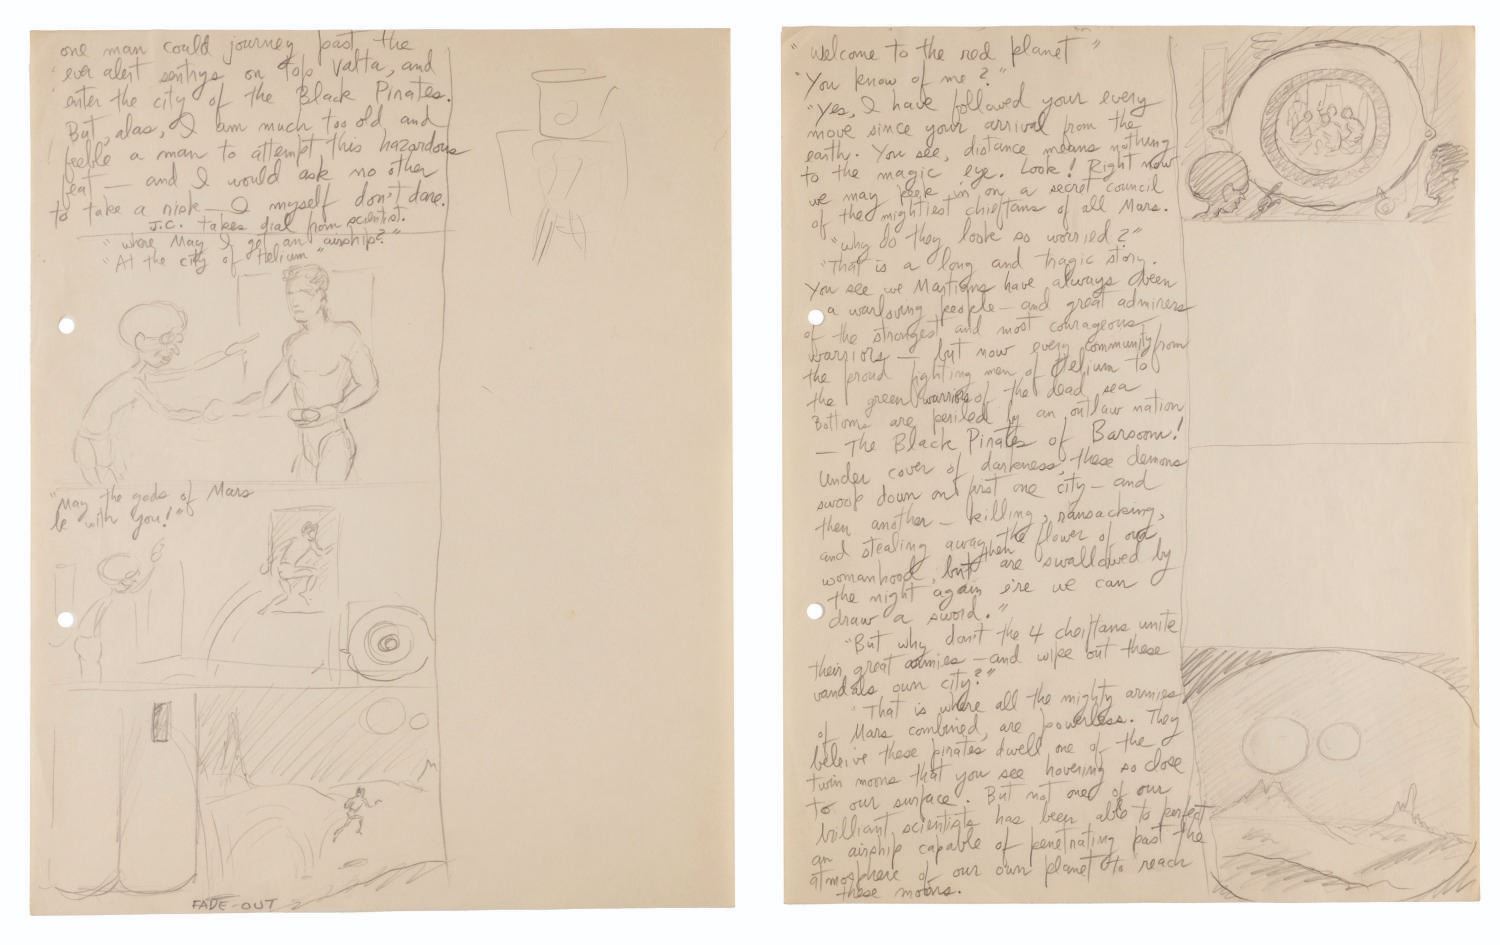 one man could journey past the
ever alert sentrys on top Valta, and
enter the city of the Black Pirates.
But, alas, I am much too old and
feeble a man to attempt this hazardous
feat — and I would ask no other
to take a risk — I myself don't dare.
J.C. takes dial from scientist.
"where May I get an airship?"
"At the city of Helium"
"May the gods of Mars
be with you!"
FADE-OUT
"welcome to the red planet"
"You know of me?"
"Yes, I have followed your every
move since your arrival from the
earth. You see, distance means nothing
to the magic eye. Look! Right now
we may peek in on a secret council
of the mightiest chieftans of all Mars.
"why do they look so worried?"
"That is a long and tragic story.
You see we Martians have always been
a warloving people — and great admirers
of the strongest and most courageous
warriors — but now every community from
the proud fighting men of Helium to
the green warriors of the dead sea
Bottoms are periled by an outlaw nation
— The Black Pirates of Barsoom!
Under cover of darkness, these demons
swoop down on first one city — and
then another — killing, ransacking,
and stealing away the flower of our
womanhood, but then are swallowed by
the night again e're we can
draw a sword."
"But why don't the 4 cheiftans unite
their great armies — and wipe out these
vandals own city?"
"That is where all the mighty armies
of Mars combined, are powerless. They
beleive these pirates dwell one of the
twin moons that you see hovering so close
to our surface. But not one of our
brilliant scientists has been able to perfect
an airship capable of penetrating past the
atmosphere of our own planet to reach
these moons.